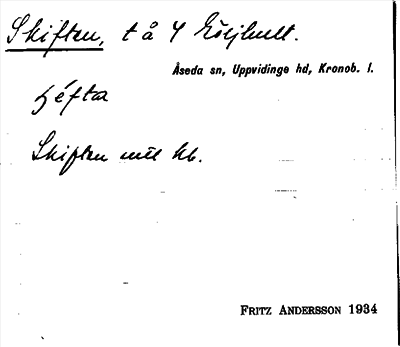 Skiften, t å 4 Höljhult.
Åseda sn, Uppvidinge hd, Kronob. l.
ʃéftar
Skiften enl. kb.
FRITZ ANDERSSON 1934